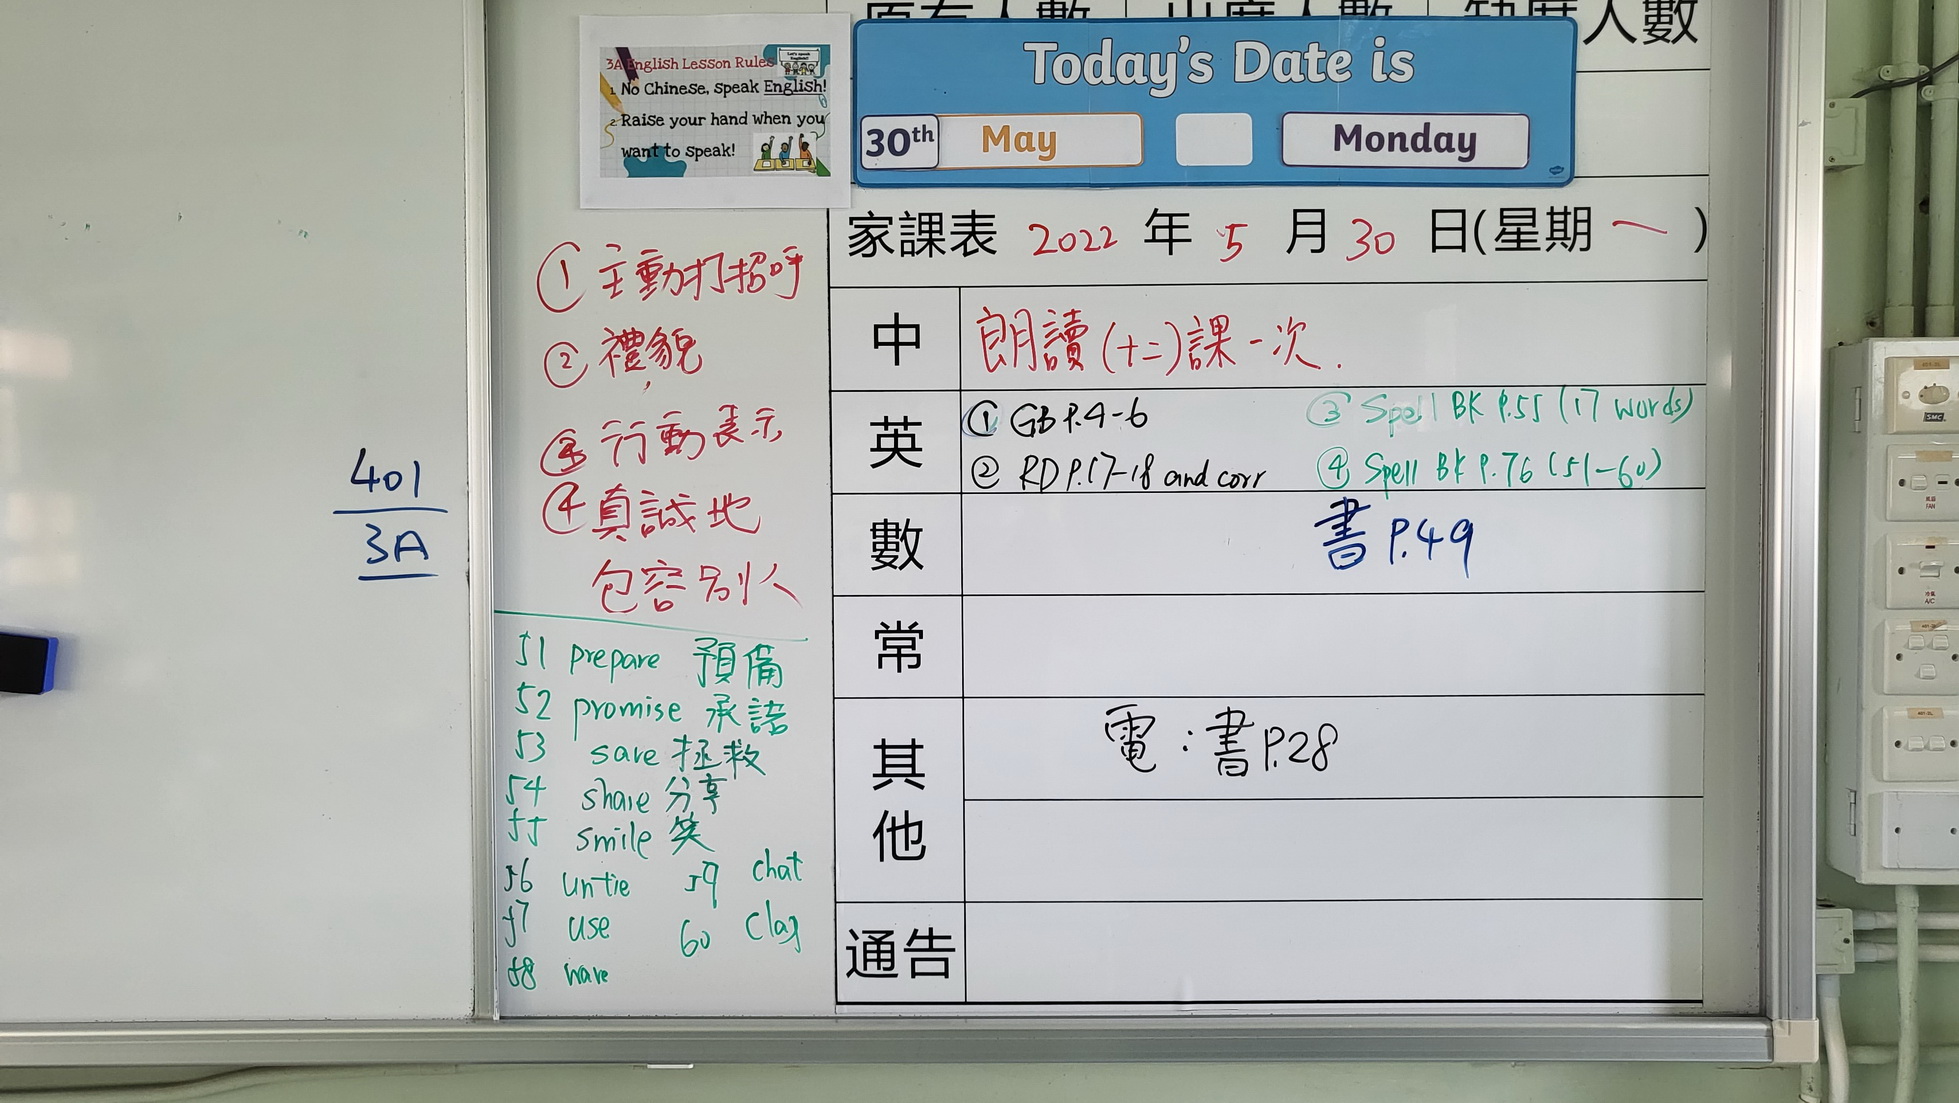 人數
3A English Lesson Rules
Let's speak English!
1. No Chinese, speak English!
2. Raise your hand when you
want to speak!
Today's Date is
30th May Monday
家課表 2022 年 5 月 30 日(星期 一 )
① 主動打招呼
② 禮貌
③ 行動表示
④ 真誠地
包容別人
401
3A
51 prepare 預備
52 promise 承諾
53 save 拯救
54 share 分享
55 smile 笑
56 untie 59 chat
57 use 60 clap
58 wave
中 朗讀(十二)課一次.
英 ① GB P.4-6 ③ Spell BK P.55 (17 words)
② RD P.17-18 and corr ④ Spell BK P.76 (51-60)
數 書 P.49
常
其他 電:書 P.28
通告